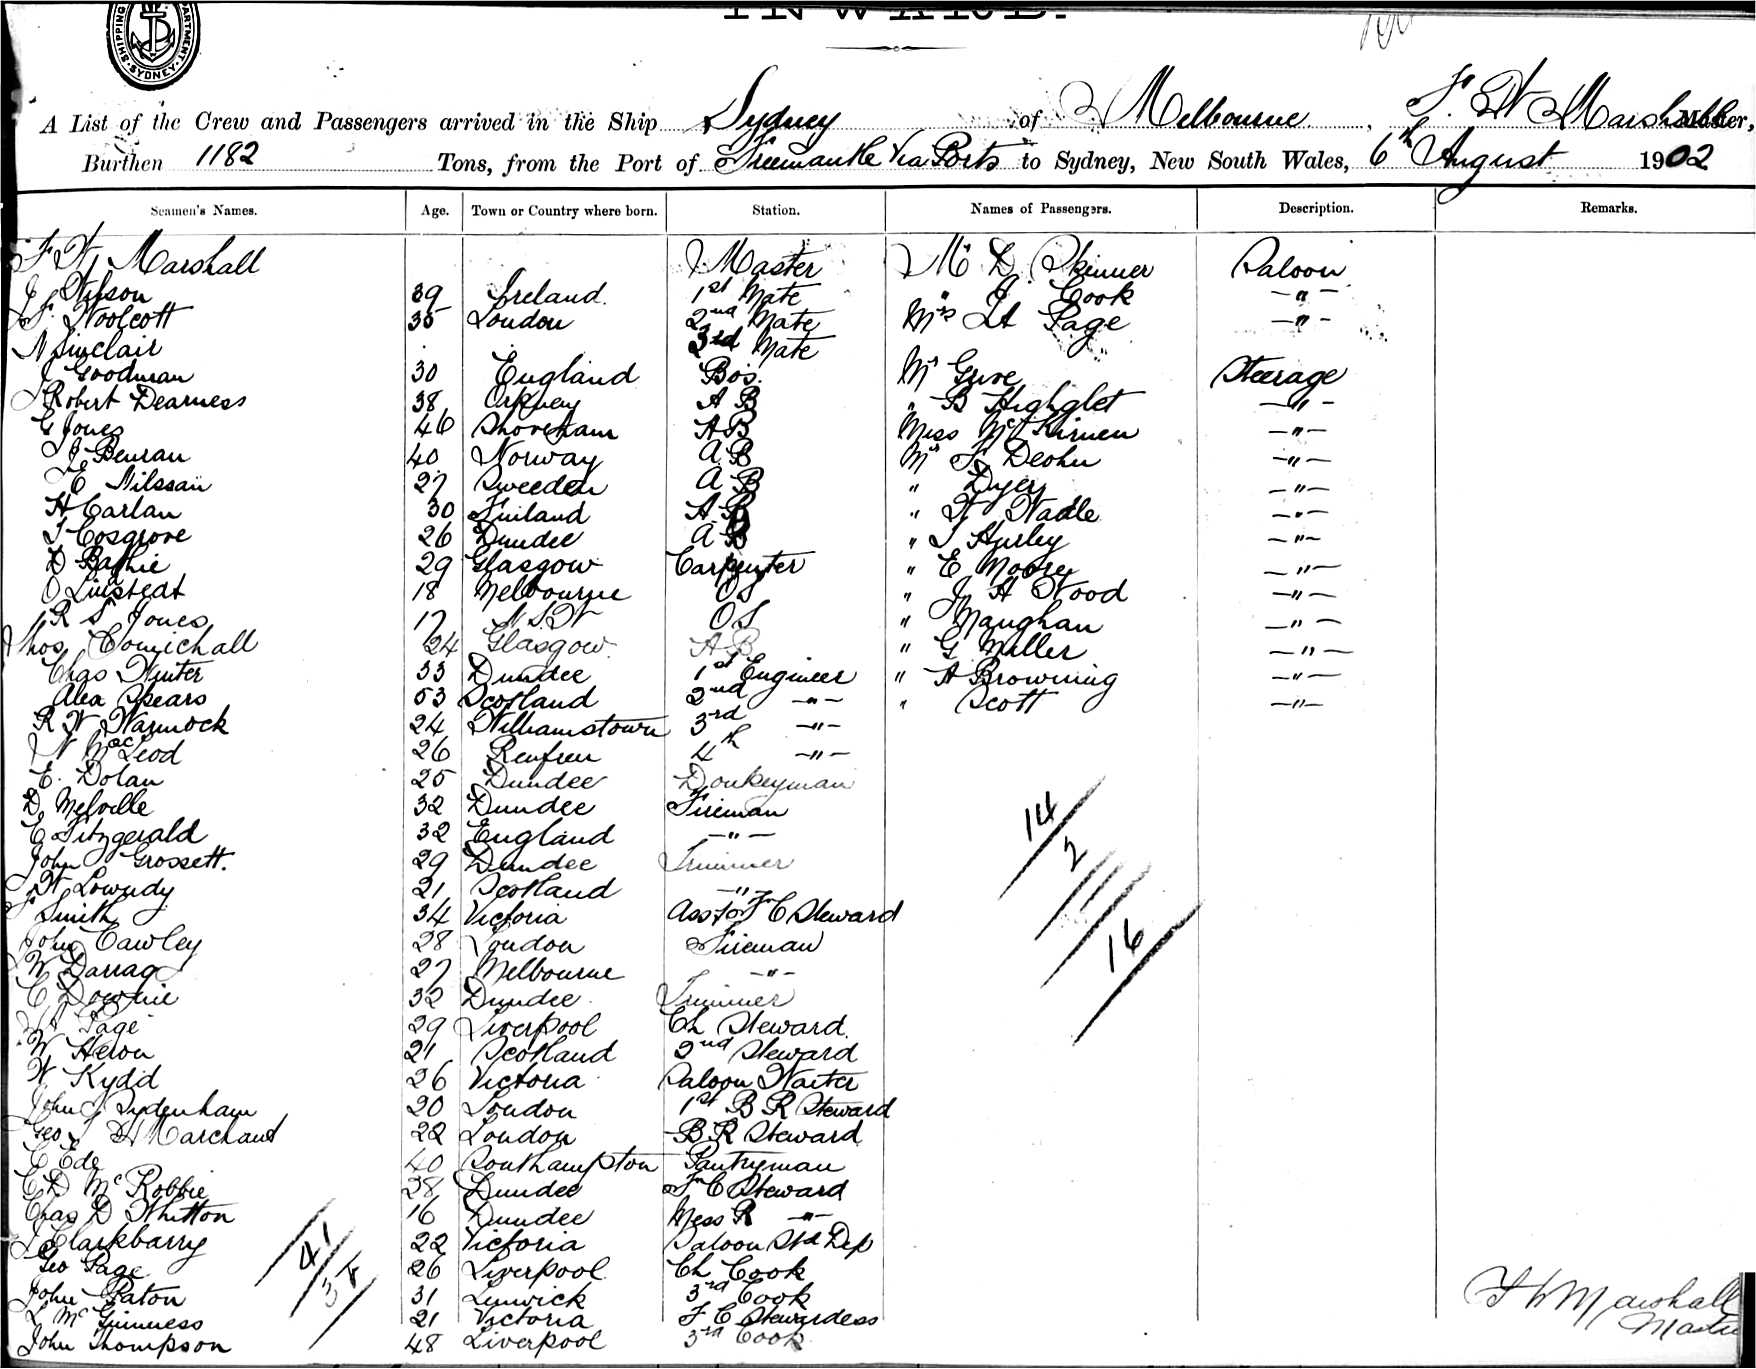 INWARD.
SHIPPING DEPARTMENT. SYDNEY.
A List of the Crew and Passengers arrived in the Ship Sydney of Melbourne, F. W Marshall Master,
Burthen 1182 Tons, from the Port of Freemantle Via Ports to Sydney, New South Wales, 6th August 1902
Seamen's Names. Age. Town or Country where born. Station. Names of Passengers. Description. Remarks.
F. W. Marshall Master Mr D Skinner Saloon
J Wilson 39 Ireland. 1st Mate " J. Cook —"—
F. Woolcott 35 London 2nd Mate Mrs Page —"—
N Sinclair 3rd Mate
J Goodman 30 England Bos. Mr Steerage
Robert Dearness 38 Orkney A B " B Highglet —"—
G Jones 46 Shoreham A B Miss —"—
J 40 Norway A B Mr —"—
E Nilssan 27 Sweeden A B " Dyer —"—
H Carlan 30 Finland A B " W Wadle —"—
T Cosgrove 26 Dundee A B " Hurley —"—
D 29 Glasgow Carpenter " E Moore —"—
O Linstedt 18 Melbourne O S " J H Wood —"—
R S Jones 17 N.S.W O S " Naughan —"—
Thos 24 Glasgow A B " G Miller —"—
Chas Winter 33 Dundee 1st Engineer " A Browning —"—
Alex Spears 53 Scotland 2nd —"— " Scott —"—
R W Warnock 24 Williamstown 3rd —"—
N MacLeod 26 Renfrew 4th —"—
E. Dolan 25 Dundee Donkeyman
D Melville 32 Dundee Fireman
E Fitzgerald 32 England —"—
John Grossett. 29 Dundee Trimmer
W Lowndy 21 Scotland —"—
F Smith 34 Victoria Asst for F C Steward
John Cawley 28 London Fireman
W Darrag 27 Melbourne —"—
C Downie 32 Dundee Trimmer
Page 29 Liverpool Ch Steward
W Heron 21 Scotland 2nd Steward
W Kydd 26 Victoria Saloon Waiter
John Sydenham 20 London 1st B R Steward
Geo Marchant 22 London B R Steward
C Ede 40 Southampton Pantryman
C D McRobbie 28 Dundee F C Steward
Chas D Whitton 16 Dundee Mess R —"—
J Clarkbarry 22 Victoria Saloon Stds
Geo Page 26 Liverpool Ch Cook
John Paton 31 3rd Cook
L McGuinness 21 Victoria F C Stewardess
John Thompson 48 Liverpool 3rd Cook
14
2
16
41
F W Marshall
Master